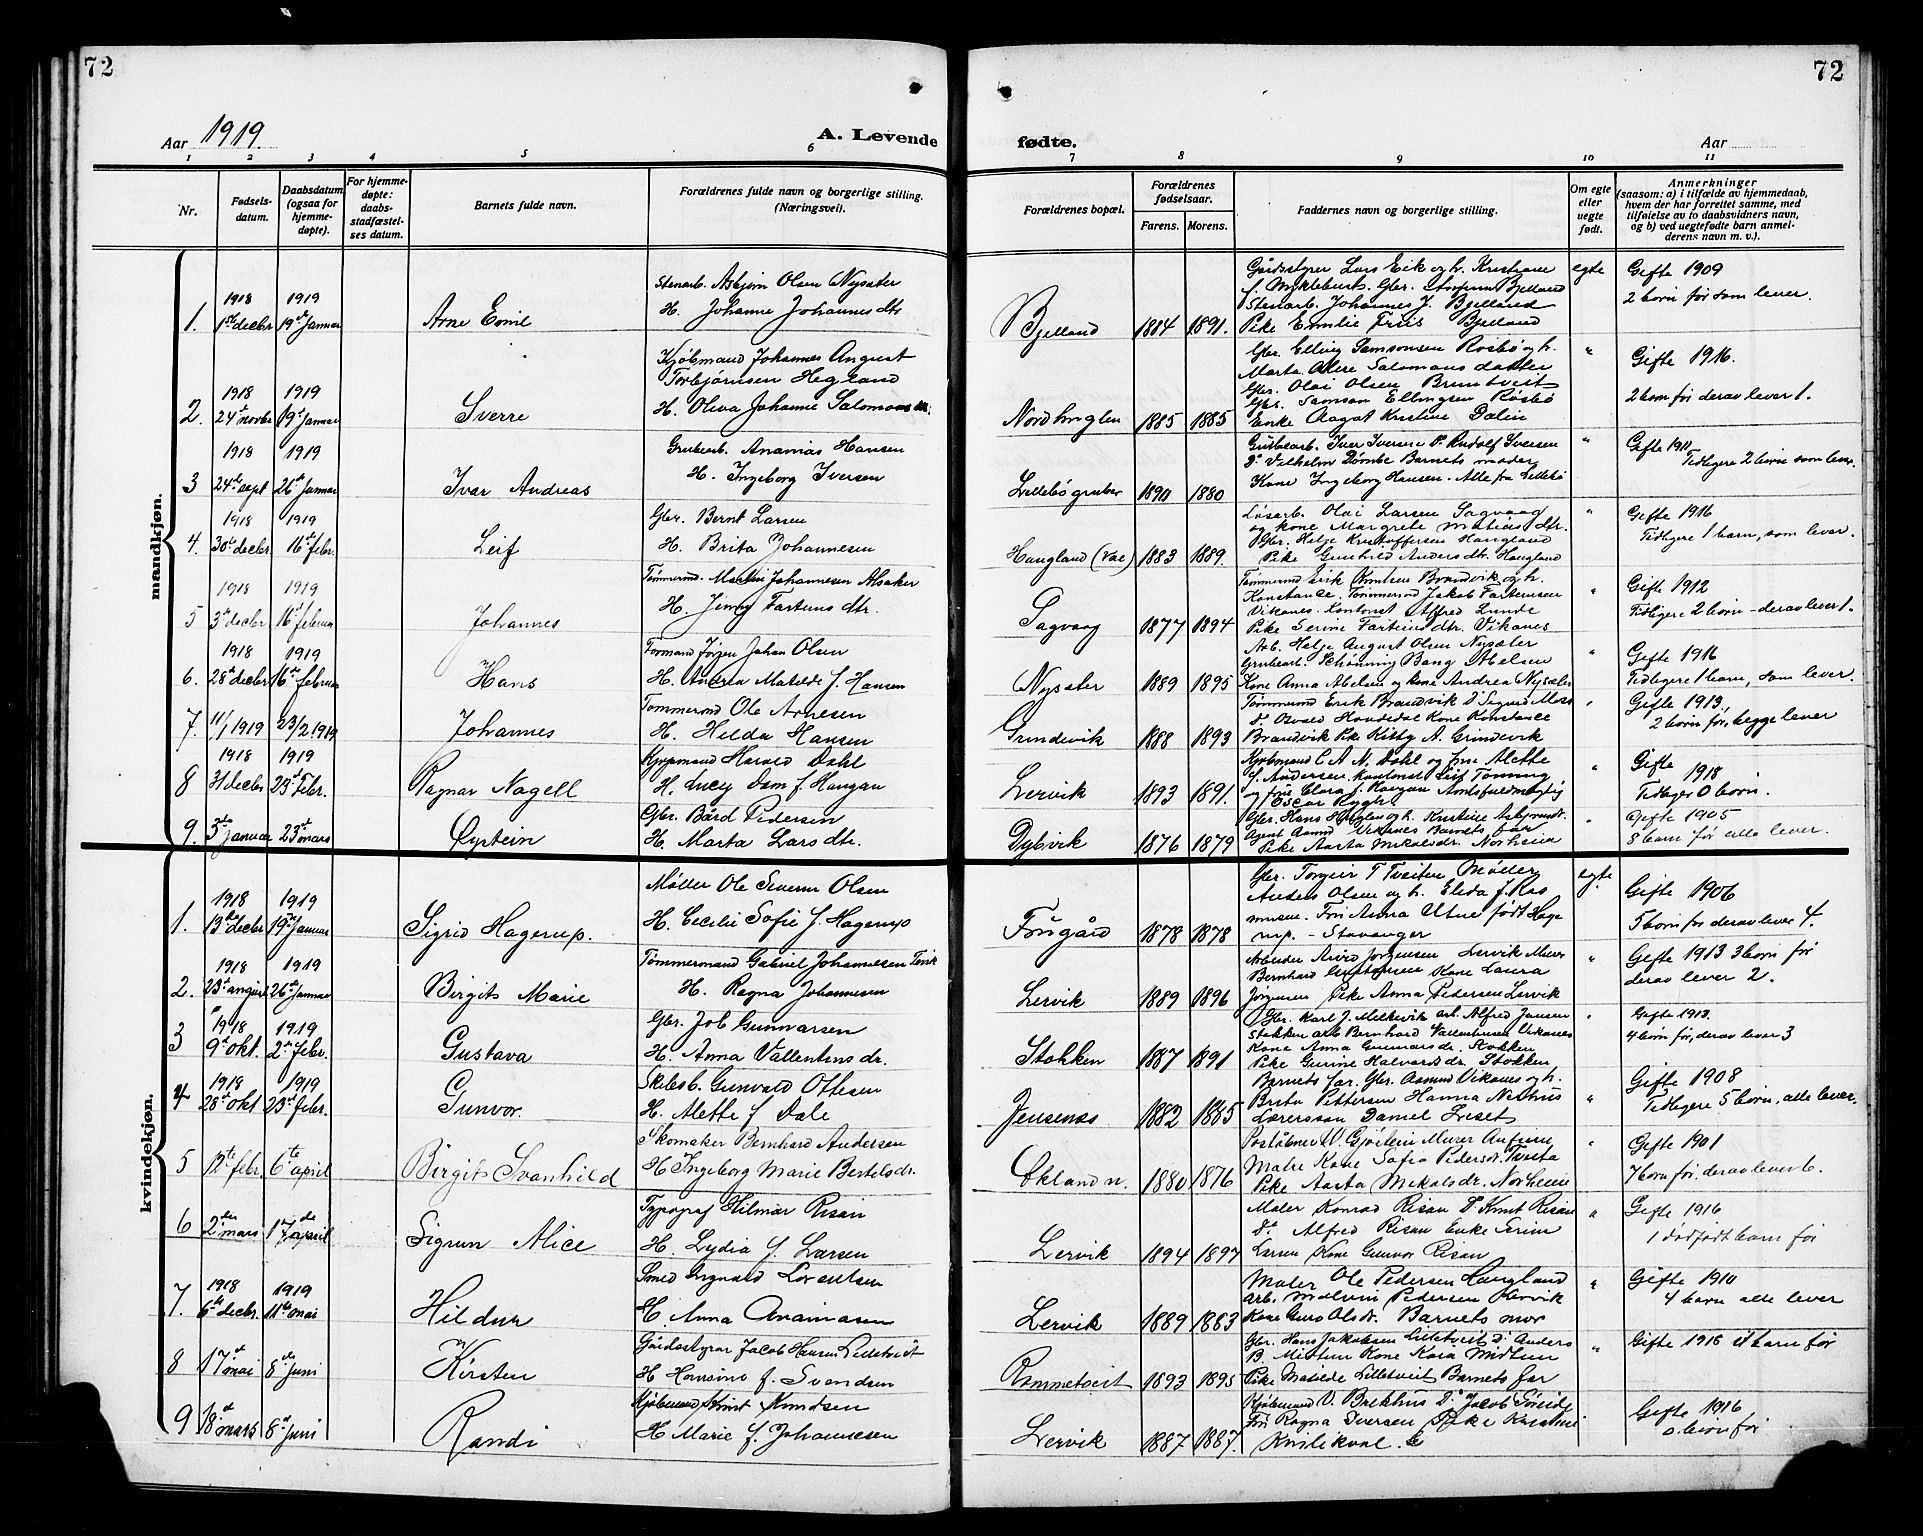 72
72
Aar 1919.
A. Levende
fødte.
Aar
1 2 3 4 5 6 7 8 9 10 11
Nr.
Fødsels-
datum.
Daabsdatum
(ogsaa for
hjemme-
døpte).
For hjemme-
døpte:
daabs-
stadfæstel-
ses datum.
Barnets fulde navn.
Forældrenes fulde navn og borgerlige stilling.
(Næringsvei).
Forældrenes bopæl.
Forældrenes
fødselsaar.
Farens. Morens.
Faddernes navn og borgerlige stilling.
Om egte
eller
uegte
født.
Anmerkninger
(saasom: a) i tilfælde av hjemmedaab,
hvem der har forrettet samme, med
tilføielse av to daabsvidners navn,
og b) ved uegtefødte barn anmel-
derens navn m. v.).
mandkjøn.
1918 1919
1. 1ste decbr 19de Januar Arne Emil
Stenarb. Asbjørn Olsen Nysæter
H. Johanne Johannes dtr
Bjelland 1884 1891.
Gårdsstyrer Lars Eik og h. Kristiane
f. Myklebust. Gbr. Bjelland
Stenarb. Johannes J. Bjelland
Pike Emilie Friis Bjelland
egte
Gifte 1909
2 børn før som lever.
1918 1919
2. 24de novbr 19de Januar Sverre
Kjøbmand Johannes August
Torbjørnsen Hegland
H. Oliva Johanne Salomons
Nordhuglen 1885 1885
Gbr. Elling Samsonsen Røsbø og h.
Marta. Oline Salomons datter
Gbr. Olai Olsen Bruntveit
Gbr. Samson Ellingsen Røsbø
Enke Aagot Kristine Dalin
"
Gifte 1916.
2 børn før derav lever 1.
1918 1919
3 24de sept 26de Januar Ivar Andreas
Grubearb. Ananias Hansen
H. Ingeborg Iversen
Lillebø gruber 1890 1880
Grubearb. Iver Iversen Do Rudolf Iversen
Do Vilhelm Dømbe Barnets moder
Kone Ingeborg Hansen. Alle fra Lillebø
"
Gifte 1911
Tidligere 2 børn som lever.
1918 1919
4. 30te decbr 16de febr. Leif
Gbr. Bernt Larsen
H. Brita Johannesen
Haugland (Vae) 1883 1889.
Løsarb. Olai Larsen Sagvaag
og kone Margrete Matias dtr.
Gbr. Helje Kristoffersen Haugland
Pike Gunhild Anders dtr. Haugland
"
Gifte 1916
Tidligere 1 barn, som lever.
1918 1919
5 3de decbr 16de februar Johannes
Tømmermd. Martin Johannesen Alsaker
H. Jenny Farteins dtr.
Sagvaag 1877 1894
Tømmermd Erik Knutsen Brandvik og h.
Konstance. Tømmermd Jakob Farteinsen
Vikanes. Kontorist Alfred Lunde
Pike Serine Farteins dtr. Vikanes
"
Gifte 1912
Tidligere 2 børn - derav lever 1.
1918 1919
6. 28de decbr 16de februar Hans
Formand Jørgen Johan Olsen
H. Andrea Matilde f. Hansen
Nysæter 1889 1895
Arb. Helje August Olsen Nysæter
Grubearb. Schønning Bang Abelsen
Kone Anna Abelsen og kone Andrea Nysæter
"
Gifte 1916
Tidligere 1 barn, som lever.
7. 11/1 1919 23/2 1919 Johannes
Tømmermd Ole Arnesen
H. Hilda Hansen
Grindevik 1888 1893
Tømmermd Erik Brandvik Do Sigurd Moss
Do Hovdedal Kone Konstance
Brandvik Pike Kitty A. Grindevik
"
Gifte 1913
2 børn før, begge lever
1918 1919
8 31 decbr 23de Febr. Ragnar Nagell
Kjøpmand Harald Dahl
H. Lucy Dam f. Haugan
Lervik 1893 1891.
Kjøbmand C. A. N. Dahl og frue Alette
f. Andersen. Kontorist Leif Tønning
og frue Clara f. Haugan Amtsfuldmægtig
Oscar Rygh.
"
Gifte
1918
Tidligere 0 børn.
9. 5te Januar 23de mars Øystein
Gbr. Bård Pedersen
H. Marta Lars dtr.
Dybvik 1876 1879
Gbr. Hans Huglen og h. Kristine
Agent Asmd Vikanes Barnets far
Pike Aasta Mikalsdr. Norheim
"
Gifte 1905
8 barn før alle lever.
kvindekjøn.
1918 1919
1. 13de decbr 19de Januar Sigrid Hagerup.
Møller Ole Severin Olsen
H. Cecilie Sofie f. Hagerup
Frugård 1878 1878
Gbr. Torgeir T Tveiten Møller
Anders Olsen og h. Elida f. Ras
musen. Frøi Anna Utne født Hage
rup. - Stavanger
egte
Gifte 1906
5 børn før derav lever 4.
1918 1919
2. 23de august 26de Januar Birgit Marie
Tømmermand Gabriel Johannesen
H. Ragna Johannesen
Lervik 1889 1896
Arbeider Arvid Jørgensen Lervik Murer
Bernhard Kone Laura
Jørgensen Pike Anna Pedersen Lervik
"
Gifte 1913 3 børn før
derav lever 2.
1918 1919
3 9de okt. 2de febr. Gustava
Gbr. Job Gunnarsen
H. Anna Vallentins dr.
Stokken 1887 1891
Gbr. Karl J. Melkevik arb. Alfred Jansen
Stokken arb Bernhard Vallentinsen Vikanes
Kone Anna Gunnarsdr. Stokken
Pike Gurine Halvardsdr. Stokken
"
Gifte 1913.
4 børn før, derav lever 3
1918 1919
4 28de okt 23de febr. Gunvor
Skibsb. Gunvald Ottesen
H. Alette f Dale
Jensenes 1882 1885
Barnets far. Gbr. Asmund Vikanes og h.
Brita Pettersen Hanna Nesthus
Lærerssøn Daniel Liset
"
Gifte 1908
Tidligere 5 børn, alle lever.
5 12te febr. 6te april Birgit Svanhild
Skomaker Bernhard Andersen
H Ingeborg Marie Bertelsdr.
Økland n. 1880 1876
Postøbner W. Gjøstein Murer Anfinn
Matre Kone Sofia Pedersdr. Tveita
Pike Aasta Mikalsdr. Norheim
"
Gifte 1901
7 børn før. derav lever 6.
6 2den mars 17de april Sigrun Alice
Typograf Hilmar Risan
H. Lydia f. Larsen
Lervik 1894 1897
Maler Konrad Risan Do Knut Risan
Do Alfred Risan Enke Serine
Larsen Kone Gunvor Risan
"
Gifte 1916
1 dødfødt barn før
1918 1919
7. 6te decbr. 11te mai Hildur
Smed Ingvald Lorentsen
H. Anna
Lervik 1889 1883
Maler Ole Pedersen Haugland
arb. Pedersen Lervik
Kone Guro Olsdr. Barnets mor
"
Gifte 1910
4 børn alle lever
8 17de mai 8de Juni Kirsten
Gårdsstyrer Jacob Hansen Lilletveit
H Hansine f. Svendsen
Rommetveit 1893 1895
Gbr. Hans Jakobsen Lilletveit Do Anders
B. Midtun Kone Kora Midtun
Pike Matilde Lilletveit Barnets far
"
Gifte 1916 et barn før
9 18de mars 8de Juni Randi
Kjøbmand Knut Knudsen
H Marie f. Johannesen
Lervik 1887 1887.
Kjøbmand O. Brekhus Do Jacob Søreide
Frøi Ragna Iversen Pike Kristine
Gifte 1916
0 børn før